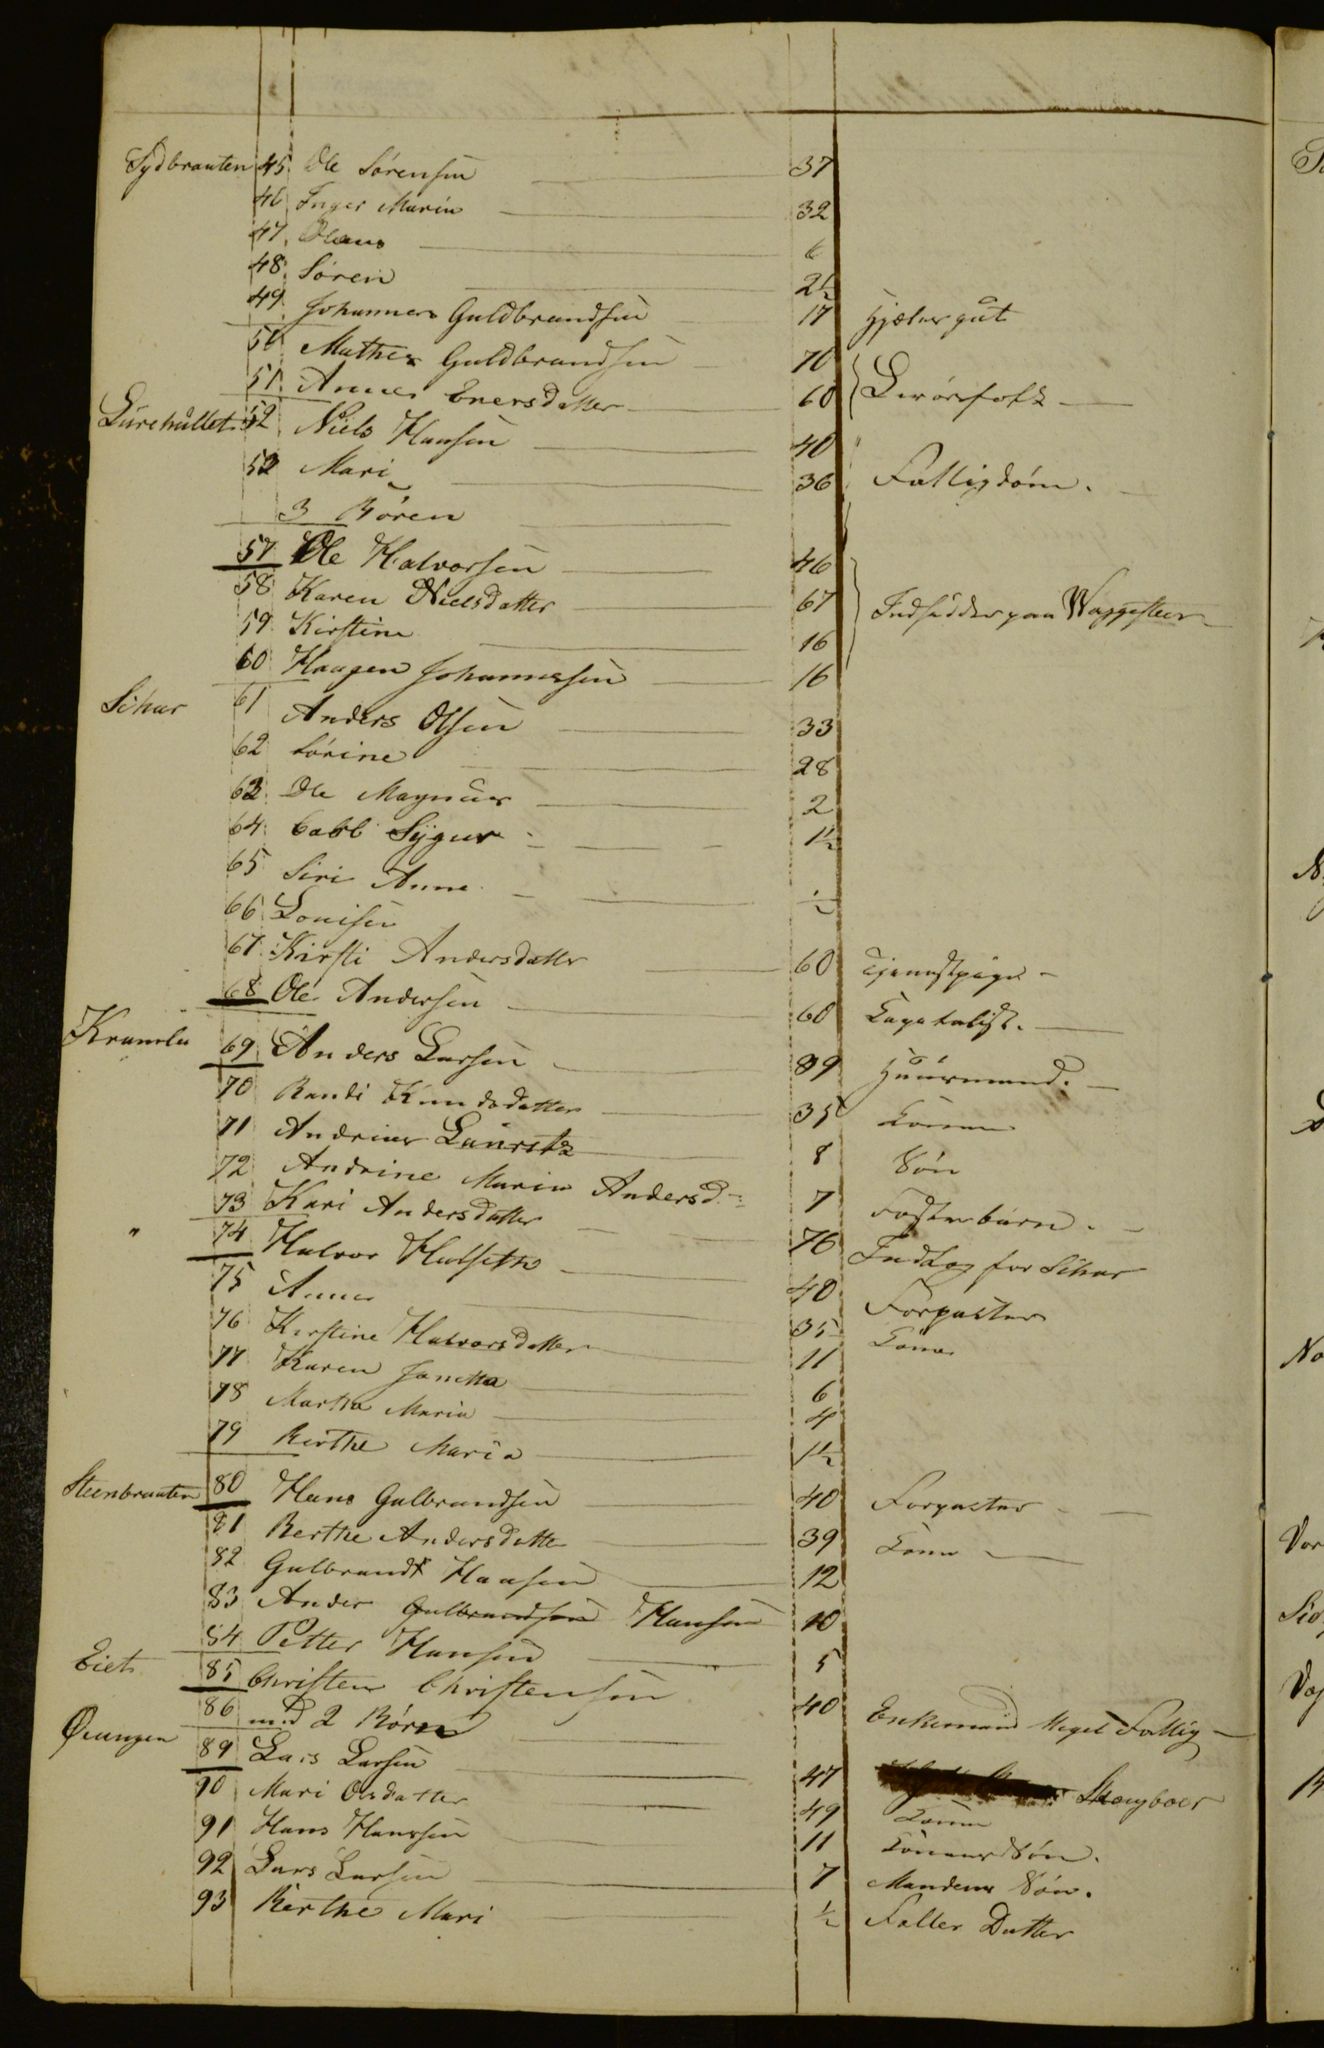 Sydbraaten 45 Ole Sørensen 37
46 Inger Marin 32
47 Olaus 6
48 Søren 2½
49 Johannes Guldbrandsen 17 Hjælregut
50 Mathes Guldbrandsen 70
51 Anne Enersdatter 60 Leiørfolk
Lurehullet 52 Niels Hansen 40
53 Mari 36 Fattigdom.
3 Børen
57 Ole Halvorsen 46
58 Karen Nielsdatter 67 Indsidder paa Waggesteen
59 Kirstine 16
60 Haagen Johannesen 16
Sihar 61 Anders Olsen 33
62 Sørine 28
63 Ole Magnus 2
64 Carl Sygur 1½
65 Siri Anne ½
66 Louise
67 Kirsti Andersdatter 60 Tjenestpige
68 Ole Andersen 60 Kapitalist.
69 Anders Larsen 89 Huusmand.
70 Randi Knudsdatter 35 Kone
71 Andreas Lauritz 8 Søn
72 Andrine Marin Andersd. 7 Fosterbarn.
73 Kari Andersdatter 76 Indlag for Sihar
" 74 Halvor Hulseth 40 Forpagter
75 Anne 35 Kone
76 Kirstine Halvorsdatter 11
77 Karen Janetta 6
78 Martha Maria 4
79 Berthe Maria 1½
Steenbraaten 80 Hans Gulbrandsen 40 Forpagter
81 Berthe Andersdatter 39 Kone
82 Gulbrandt Hansen 12
83 Ander Gulbrandsen Hansen 10
84 Petter Hansen 5
Eiet 85 Christen Christensen 40 Enkemand Meget Fattig
86 med 2 Børn
89 Lars Larsen 47 Skougboer
90 Mari Olsdatter 49 Kone
91 Hans Hansen 11 Konens Søn.
92 Lars Larsen 7 Mandens Søn.
93 Berthe Mari ½ Fælles Datter